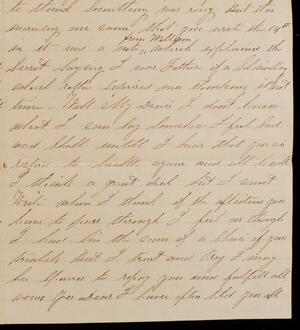 to think something was rong but this
morning one came that you wrote the 14th
in it was a note from William which explains the
Secret Saying I was Father of a
which rather suprises me
time. Well My Dear I dont know
what I can say Somehow I feel Sad
and Shall untill I hear that you are
to health again and all is well
I think a great deal but I cant
Write when I think of the afflictions you
have to pass through I feel as though
I have bin the cause of a Share of your
but I trust and Pray I may
be Spared to repay you and fulfill all
vows yes Dear I have often told you all